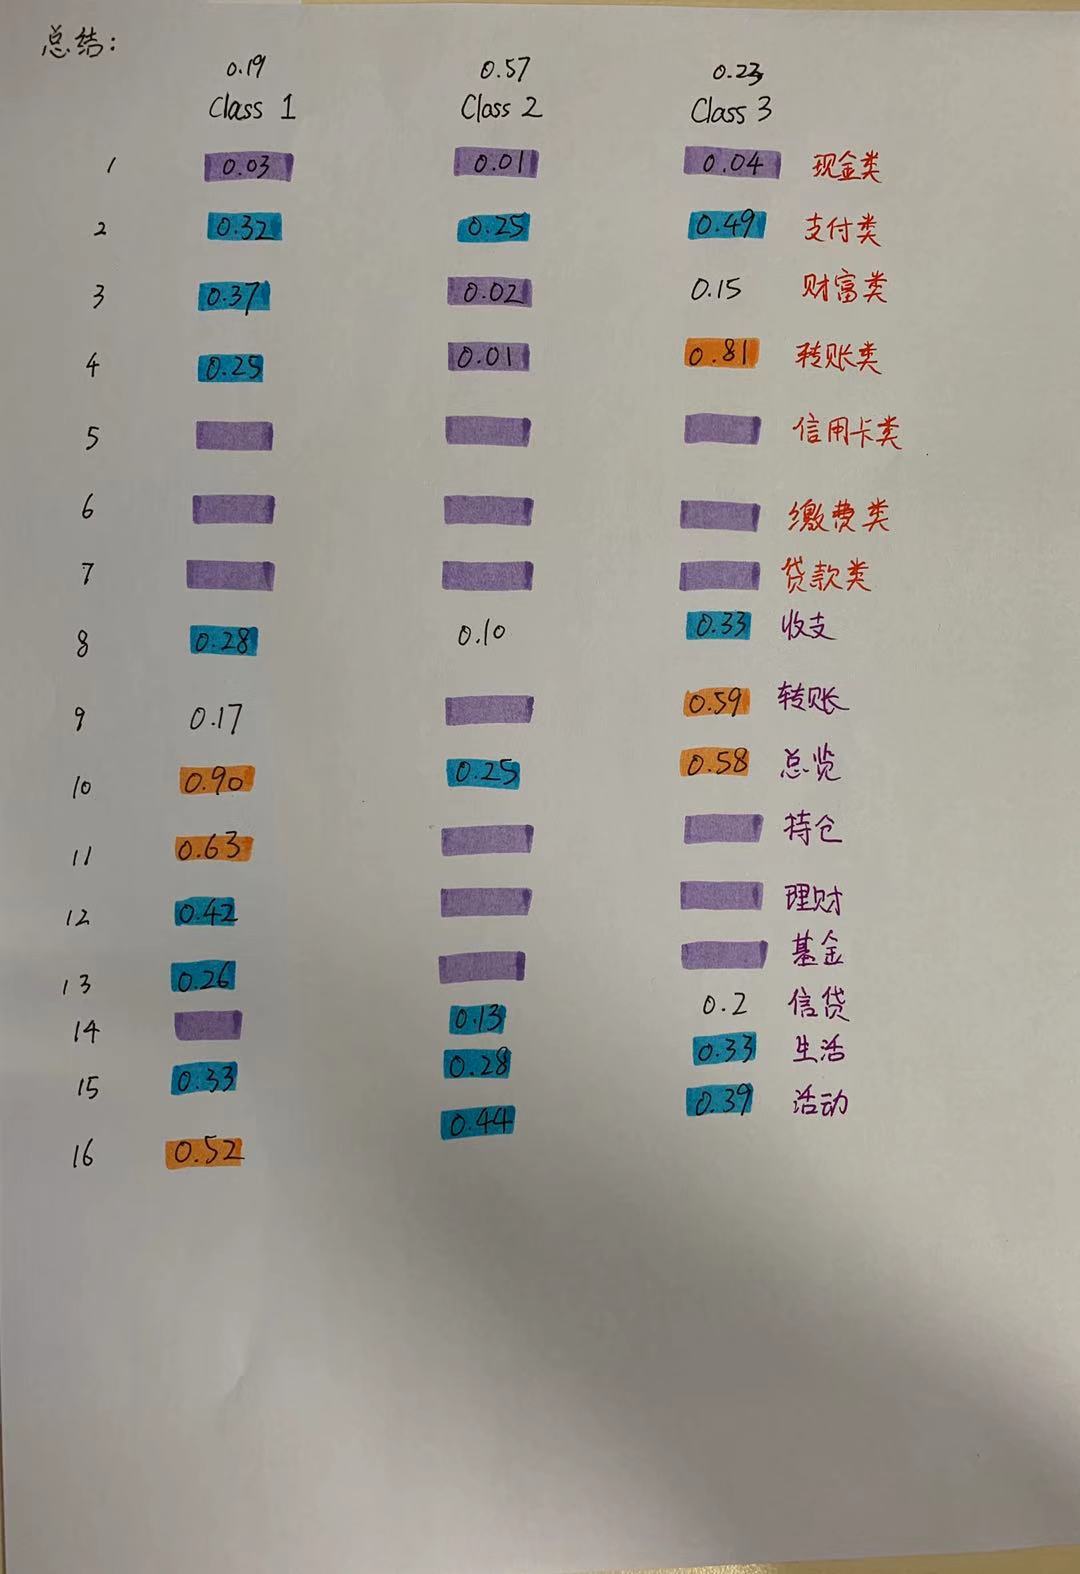 总结:
0.19 0.57 0.23
Class 1 Class 2 Class 3
1 0.03 0.01 0.04 现金类
2 0.32 0.25 0.49 支付类
3 0.37 0.02 0.15 财富类
4 0.25 0.01 0.81 转账类
5 信用卡类
6 缴费类
7 贷款类
8 0.28 0.10 0.33 收支
9 0.17 0.59 转账
10 0.90 0.25 0.58 总览
11 0.63 持仓
12 0.42 理财
13 0.26 基金
14 0.13 0.2 信贷
15 0.33 0.28 0.33 生活
16 0.52 0.44 0.39 活动